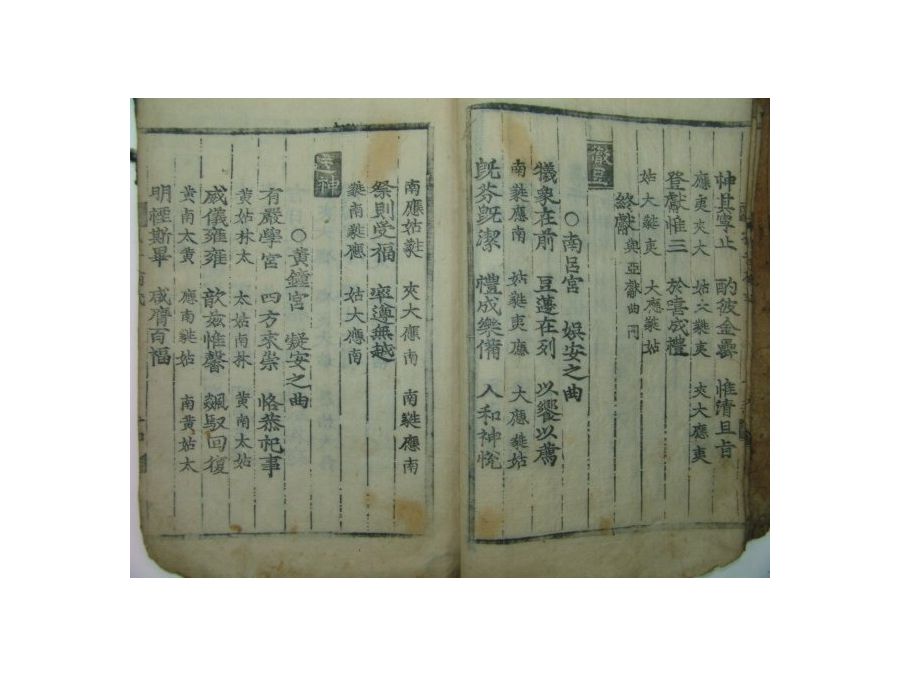 神其寧止　酌彼金罍　惟淸且旨
應夷夾大　姑大蕤夷　夾大應夷
登獻惟三　於嘻成禮
姑大蕤夷　大應蕤姑
終獻與亞獻曲同
徹豆
○南呂宮　娛安之曲
犧象在前　豆籩在列　以饗以薦
南蕤應南　姑蕤夷應　大應蕤姑
旣芬旣潔　禮成樂備　人和神悅
南應姑蕤　夾大應南　南蕤應南
祭則受福　率遵無越
蕤南蕤應　姑大應南
送神
○黃鐘宮　凝安之曲
有嚴學宮　四方來崇　恪恭祀事
黃姑林太　太姑南林　黃南太姑
威儀雍雍　歆玆惟馨　飆馭回復
黃南太黃　應南蕤姑　南黃姑太
明禋斯畢　咸膺百福